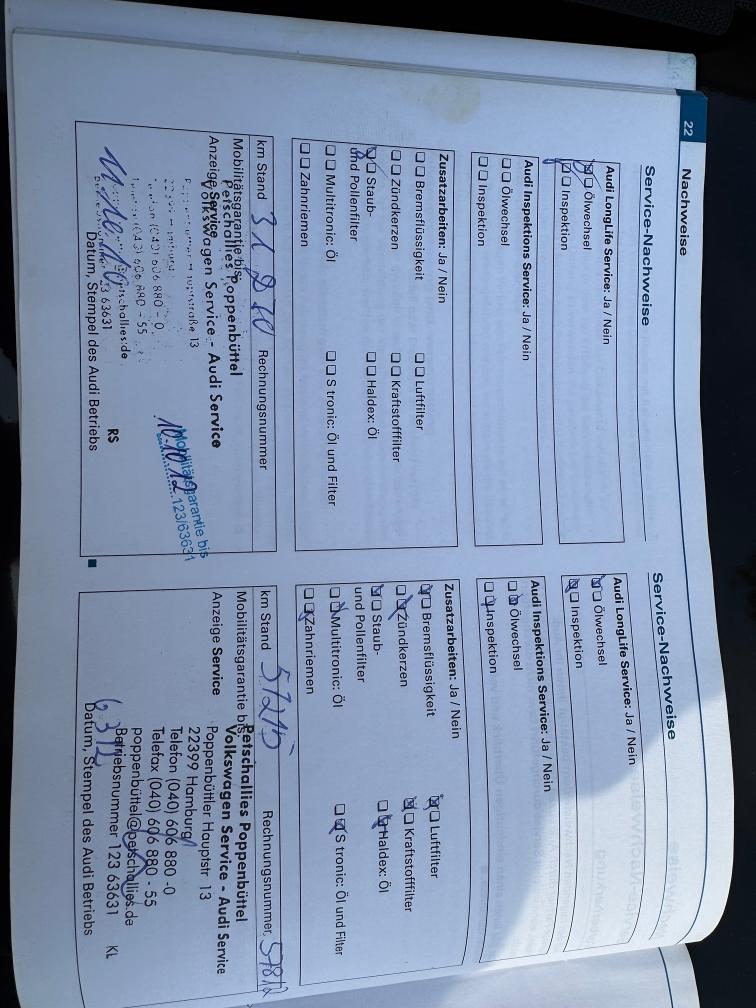 22
Nachweise
Service-Nachweise
Audi LongLife Service: Ja / Nein
Ölwechsel
Inspektion
Audi Inspektions Service: Ja / Nein
Ölwechsel
Inspektion
Zusatzarbeiten: Ja / Nein
Bremsflüssigkeit
Luftfilter
Zündkerzen
Kraftstofffilter
Staub-
und Pollenfilter
Haldex: Öl
Multitronic: Öl
S tronic: Öl und Filter
Zahnriemen
km Stand
Rechnungsnummer
Mobilitätsgarantie bis
Petschallies Poppenbüttel
Anzeige Service
Volkswagen Service - Audi Service
13
606 880 - 0
(040) 606 880 - 55
petschallies.de
123 63631
RS
Mobilitätsgarantie bis
10.10.12
123/63631
11.10.10
Datum, Stempel des Audi Betriebs
Service-Nachweise
Audi LongLife Service: Ja / Nein
Ölwechsel
Inspektion
Audi Inspektions Service: Ja / Nein
Ölwechsel
Inspektion
Zusatzarbeiten: Ja / Nein
Bremsflüssigkeit
Luftfilter
Zündkerzen
Kraftstofffilter
Staub-
und Pollenfilter
Haldex: Öl
Multitronic: Öl
S tronic: Öl und Filter
Zahnriemen
km Stand 57215
Rechnungsnummer
Mobilitätsgarantie bis
Petschallies Poppenbüttel
Anzeige Service
Volkswagen Service - Audi Service
Poppenbüttler Hauptstr 13
22399 Hamburg
Telefon (040) 606 880 -0
Telefax (040) 606 880 - 55
poppenbüttel@petschallies.de
Betriebsnummer 123 63631 KL
6.3.12
Datum, Stempel des Audi Betriebs